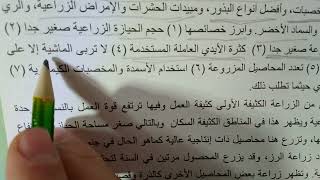 خصبات، وأفضل انواع البذور، ومبيدات الحشرات والإمراض الزراعية، والري
والسماد الأخضر. وابرز خصائصها (١) حجم الحيازة الزراعية صغير جدا (٢)
صغير جدا (٣) كثرة الأيدي العاملة المستخدمة (٤) لا تربى الماشية إلا على
(٥) تعدد المحاصيل المزروعة (٦) استخدام الأسمدة والمخصبات (٧)
حيثما تطلب ذلك.
من الزراعة الكثيفة الأولى كثيفة العمل وفيها ترتفع قوة العمل بالنسبة
ويظهر هذا في المناطق الكثيفة السكان وبالتالي صغر مساحة الحيازة
وتزرع هنا محاصيل ذات إنتاجية عالية كماهو الحال في
زراعة الرز، وقد يزرع المحصول مرتين في السنة
زراعة بعض المحاصيل الأخرى